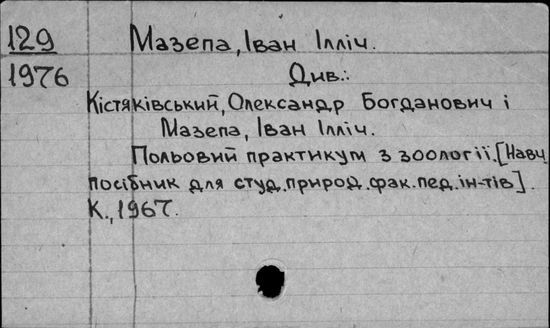 129 Мазепа, Іван Ілліч.
1976 Див.:
Кістяківський, Олександр Богданович і
Мазепа, Іван Ілліч.
Польовий практикум з зоології. [Навч.
посібник для студ. природ. фак. пед. ін-тів].
К., 1967.